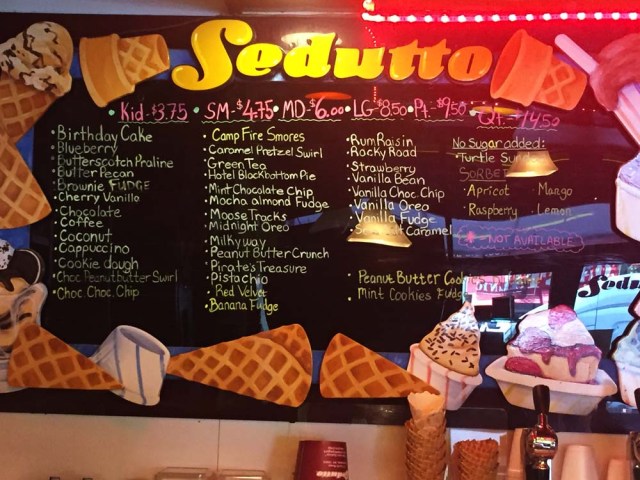 Sedutto
Kid-$3.75 • SM-$4.75 • MD-$6.00 • LG-$8.50 • Pt.-$9.50 • Qt.-14.50
• Birthday Cake
• Blueberry
• Butterscotch Praline
• Butter Pecan
• Brownie FUDGE
• Cherry Vanilla
• Chocolate
• Coffee
• Coconut
• Cappuccino
• Cookie dough
• Choc Peanutbutter Swirl
• Choc Choc. Chip
• Camp Fire Smores
• Caramel Pretzel Swirl
• Green Tea
• Hotel Blockbottom Pie
• Mint Chocolate Chip
• Mocha almond Fudge
• Moose Tracks
• Midnight Oreo
• Milky way
• Peanut Butter Crunch
• Pirate's Treasure
• Pistachio
• Red Velvet
• Banana Fudge
• Rum Raisin
• Rocky Road
• Strawberry
• Vanilla Bean
• Vanilla Choc. Chip
• Vanilla Oreo
• Vanilla Fudge
Caramel
• Peanut Butter
• Mint Cookies
No Sugar added:
• Turtle
SORBET
• Apricot • Mango
• Raspberry • Lemon
- NOT AVAILABLE
Sedutto